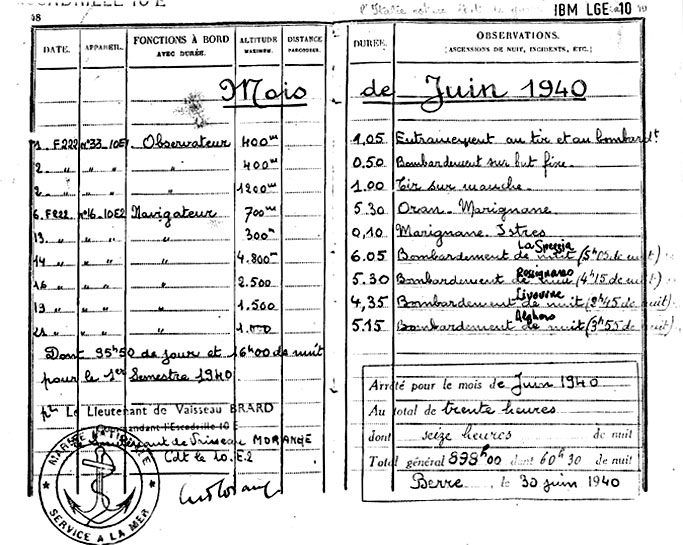 ESCADRILLE 10 E
IBM LGE 10
DATE. APPAREIL. FONCTIONS À BORD AVEC DURÉE. ALTITUDE MAXIMUM. DISTANCE PARCOURUE. DURÉE. OBSERVATIONS. (ASCENSIONS DE NUIT, INCIDENTS, ETC.)
Mois de Juin 1940
1. F.222 n°33.10E1 Observateur 400m 1,05 Entrainement au tir et au bombardt
2 " " 400m 0.50 Bombardement sur but fixe.
2 " " 1200m 1.00 Tir sur manche.
6. F222 n°16.10E2 Navigateur 700m 5.30 Oran. Marignane
13. " " " 300m 0,10 Marignane. Istres
La Spezia
14 " " " 4.800m 6.05 Bombardement de nuit (5h05 de nuit)
Rosignano
16 " " " 2.500 5.30 Bombardement de nuit (4h15 de nuit)
Livourne
19 " " " 1.500 4,35 Bombardement de nuit (2h45 de nuit)
Alghero
21 " " " 1.000 5.15 Bombardement de nuit (3h55 de nuit)
Dont 95h50 de jour et 16h00 de nuit
pour le 1er Semestre 1940
Arrêté pour le mois de Juin 1940
pr Le Lieutenant de Vaisseau BRARD
Au total de trente heures
Commandant l'Escadrille 10 E
dont seize heures de nuit
Lieutenant de Vaisseau MORANGE
Cdt le 10.E.2
Total général 898h00 dont 60h30 de nuit
Berre le 30 juin 1940
MARINE NATIONALE
SERVICE A LA MER